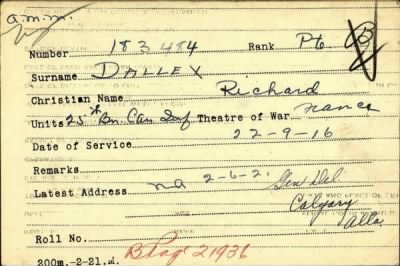 a.m.m.
Number 183484 Rank Pte B
Surname DALLEX
Christian Name Richard
Units 25 Bn. Can Inf Theatre of War France
Date of Service 22-9-16
Remarks
Latest Address na 2-6-21 Gen Del
Calgary
Alta.
Roll No. B Page 21936
200m.-2-21.